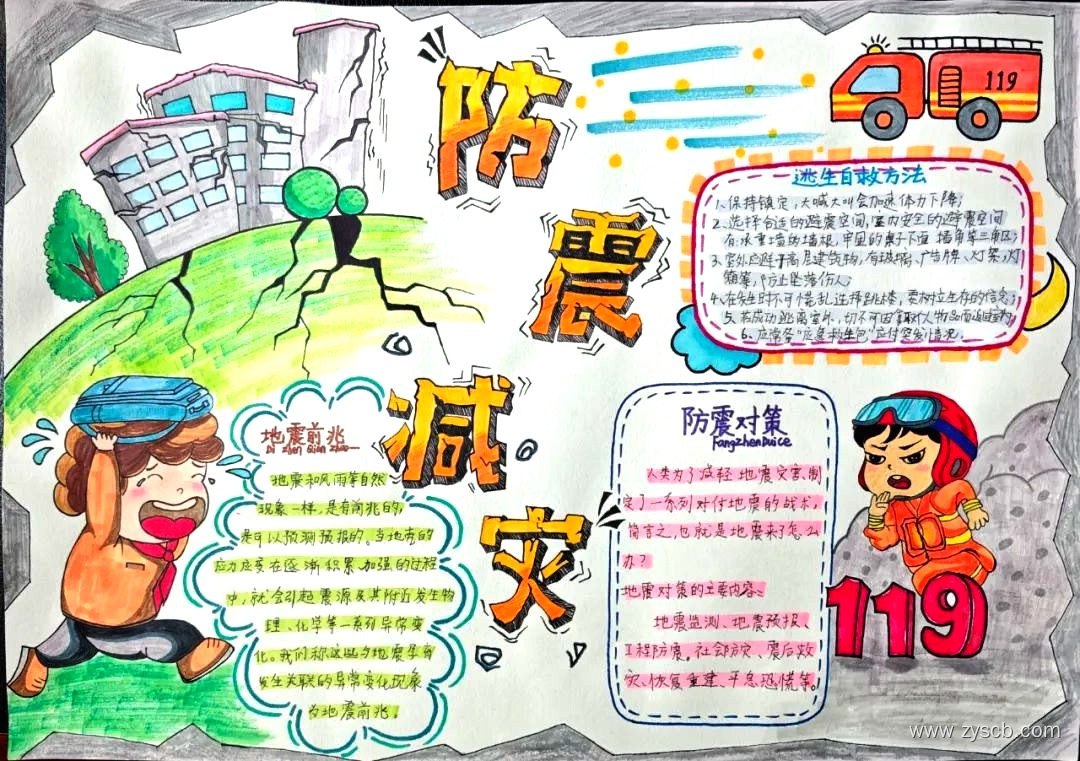 防
震
减
灾
119
逃生自救方法
1、保持镇定,大喊大叫会加速体力下降;
2、选择合适的避震空间,室内安全的避震空间
有:承重墙的墙根,牢固的桌子下面 墙角等三角区;
3、室外应避开高层建筑物,有玻璃、广告牌、灯架,灯
箱等,防止坠落伤人;
4、在失生时不可慌乱选择跳楼,要树立生存的信念;
5、若成功逃离室外,切不可因拿取
6、应常备"应急救生包"应付突发情况.
地震前兆
Di zhen Qian zhao
地震和风雨等自然
现象一样,是有前兆的,
是可以预测预报的。当地壳的
应力应变在逐渐积累、加强的过程
中,就会引起震源及其附近发生物
理、化学等一系列异常变
化。我们称这些与地震孕育
发生关联的异常变化现象
为地震前兆。
防震对策
FangzhenDuice
人类为了减轻地震灾害,制
定了一系列对付地震的战术,
简言之,也就是地震来了怎么
办?
地震对策的主要内容:
地震监测、地震预报、
工程防震。社会防灾、震后救
灾、恢复重建、平息恐慌等。
119
www.zyscb.com